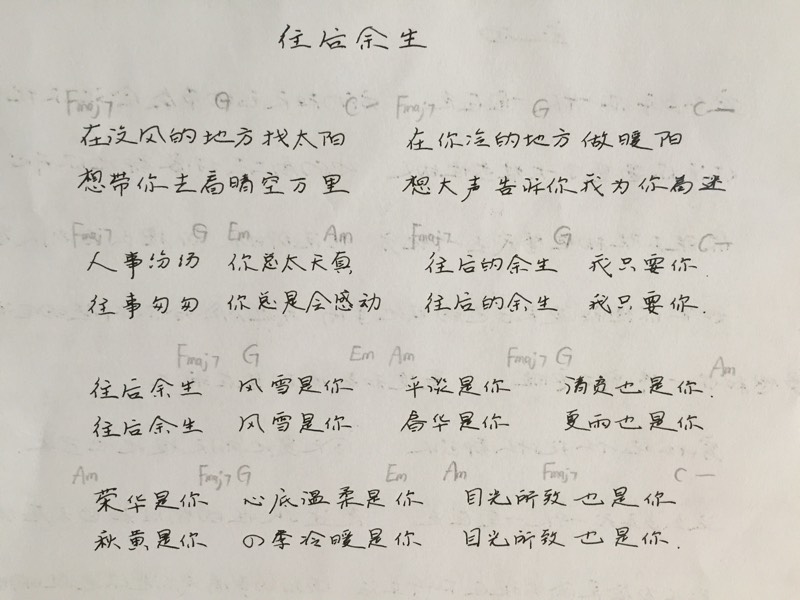 往后余生
Fmaj7 G C — Fmaj7 G C —
在没风的地方找太阳 在你冷的地方做暖阳
想带你去看晴空万里 想大声告诉你我为你着迷
Fmaj7 G Em Am Fmaj7 G C —
人事纷纷 你总太天真 往后的余生 我只要你.
往事匆匆 你总是会感动 往后的余生 我只要你.
Fmaj7 G Em Am Fmaj7 G Am
往后余生 风雪是你 平淡是你 清贫也是你.
往后余生 风雪是你 春华是你 夏雨也是你
Am Fmaj7 G Em Am Fmaj7 C —
荣华是你 心底温柔是你 目光所致 也是你
秋黄是你 四季冷暖是你 目光所致 也是你.